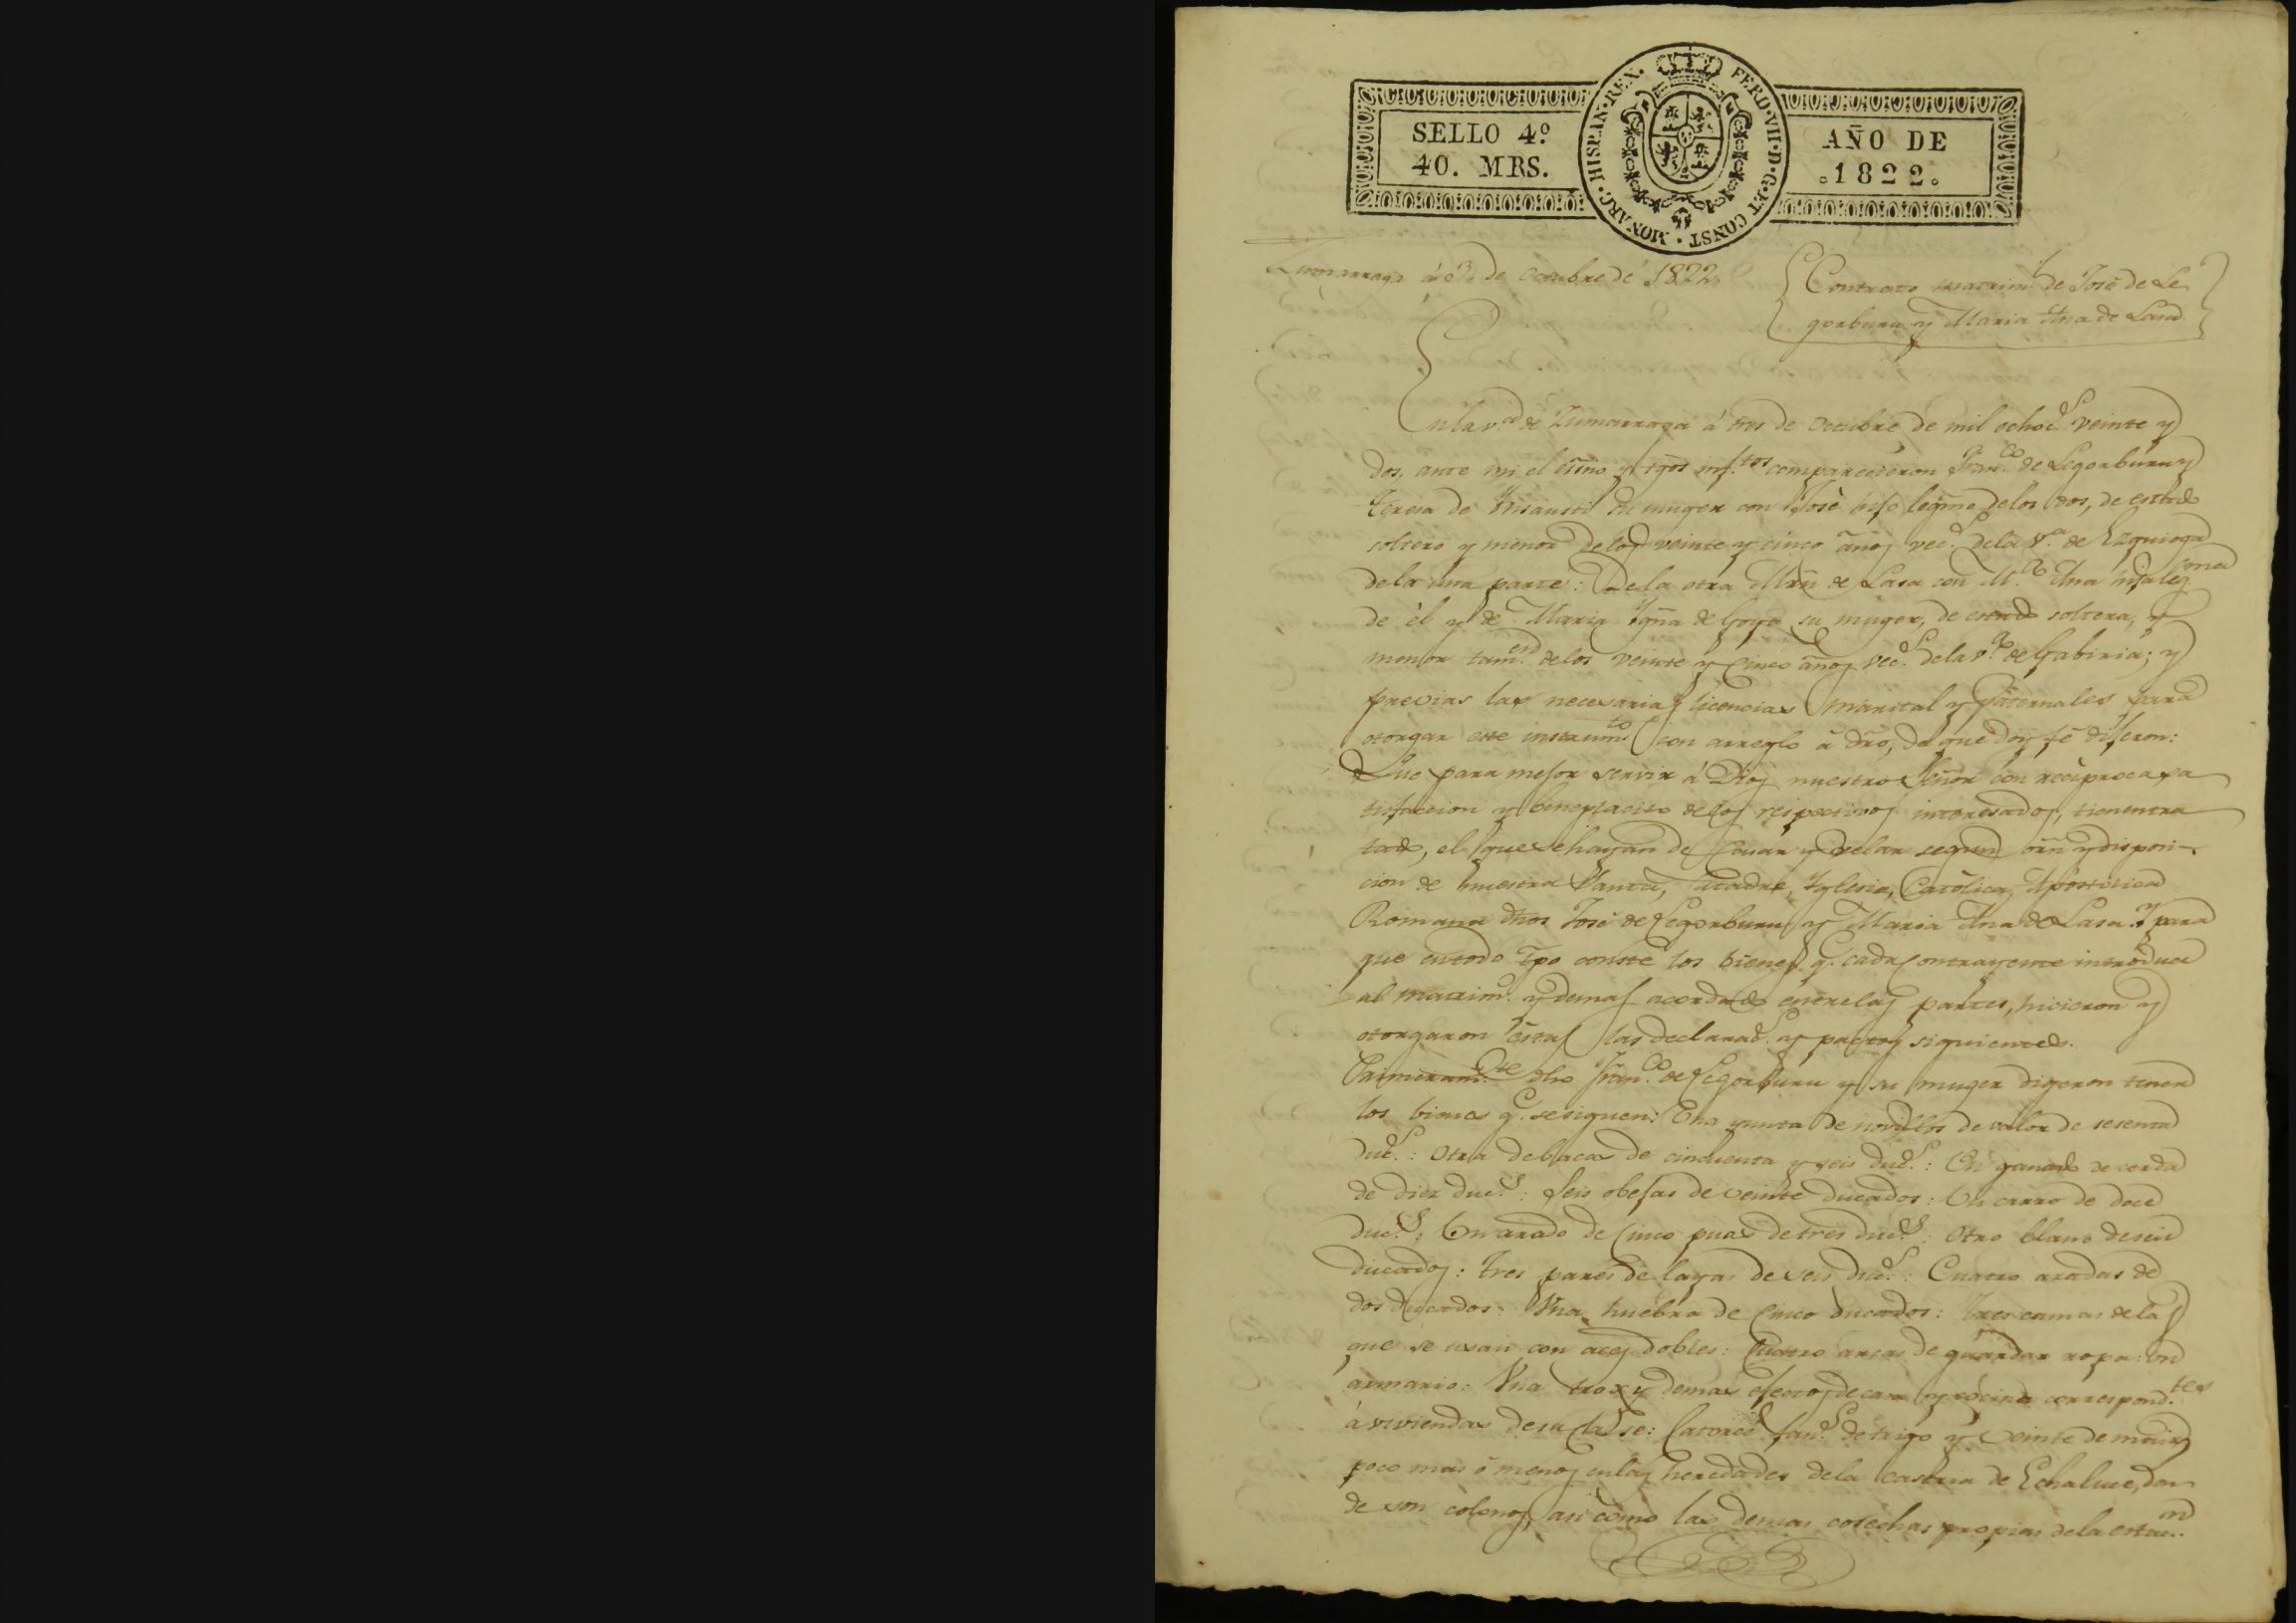 SELLO 4º
40. MRS.
FERD·VII·D·G·ET CONST·MONARC·HISPAN·REX.
AÑO DE
1822
Zumarraga á 3 de octubre de 1822
Contrato matrim.l de José de Le
gorburu y Maria Ana de Lasa
En la v.a de Zumarraga á tres de Octubre de mil ochoc.s veinte y
dos, ante mi el esño y tgos inf.tos comparecieron Fran.co de Legorburu y
Teresa de Insausti su muger con José hijo legmo de los dos, de estado
soltero y menor de los veinte y cinco años vec.s de la V.a de Ezquioga
de la una parte: De la otra Mrn de Lasa con M.a Ana hija leg.ma
de él y de Maria Ygña de Goya su muger, de estado soltera, y
menor tam.en de los veinte y cinco años vec.s de la v.a de Gabiria; y
previas las necesarias licencias marital y paternales para
otorgar este instrum.to con arreglo á dro, de que doy fé dijeron:
Que para mejor servir á Dios nuestro Señor con reciproca sa
tisfaccion y beneplacito de los respectivos interesados, tienen tra
tado, el que se hayan de casar y velar segun orn y disposi-
cion de nuestra Santa, Madre, Yglesia, Católica, Apostolica
Romana dhos José de Legorburu y Maria Ana de Lasa. Y para
que en todo tpo conste los bienes q.e cada contrayente introduce
al matrim.o y demas acordado entre las partes, hicieron y
otorgaron estas las declarac.s y pactos siguientes.
Primeram.te dho Fran.co de Legorburu y su muger digeron tener
los bienes q.e se siguen: Una yunta de novillos de valor de sesenta
duc.s: Otra de bacas de cincuenta y seis duc.s: Un ganado de cerda
de diez duc.s: Seis obejas de veinte ducados: Un carro de doce
duc.s: Un arado de cinco puas de tres duc.s: Otro llano de seis
ducados: Tres pares de layas de seis duc.s: Cuatro azadas de
dos ducados: Una huebra de cinco ducados: Tres camas de las
que se usan con aces dobles: Cuatro arcas de guardar ropa: un
armario: Una trox y demas efectos de casa y cocina correspond.tes
á viviendas de su clase: Catorce fan.s de trigo y veinte de maiz
poco mas ó menos en las heredades de la caseria de Echaluce, don
de son colonos, asi como las demas cosechas propias de la estac.on